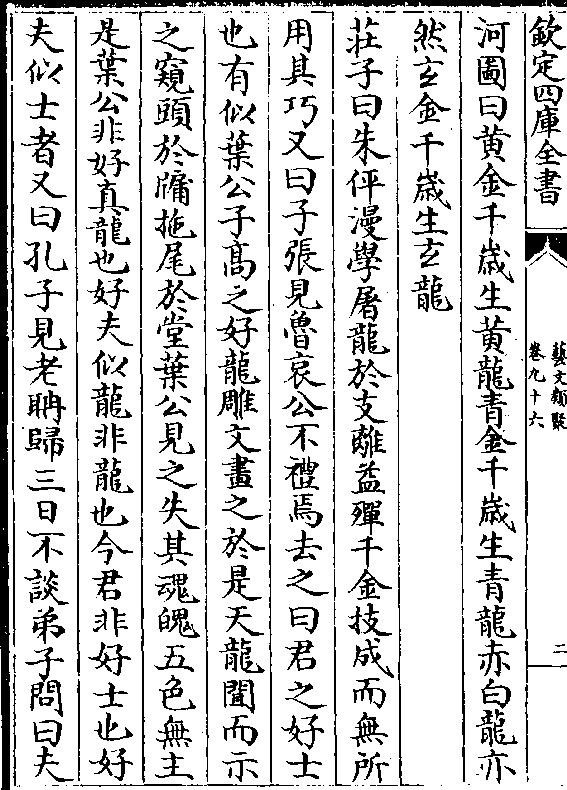 欽定四庫全書
藝文類聚
卷九十六
二
河圖曰黄金千嵗生黄龍青金千嵗生青龍赤白龍亦
然玄金千嵗生玄龍
莊子曰朱伻漫學屠龍於支離益殫千金技成而無所
用其巧又曰子張見魯哀公不禮焉去之曰君之好士
也有似葉公子髙之好龍雕文畫之於是天龍聞而示
之窺頭於牖拖尾於堂葉公見之失其魂魄五色無主
是葉公非好真龍也好夫似龍非龍也今君非好士也好
夫似士者又曰孔子見老聃歸三日不談弟子問曰夫